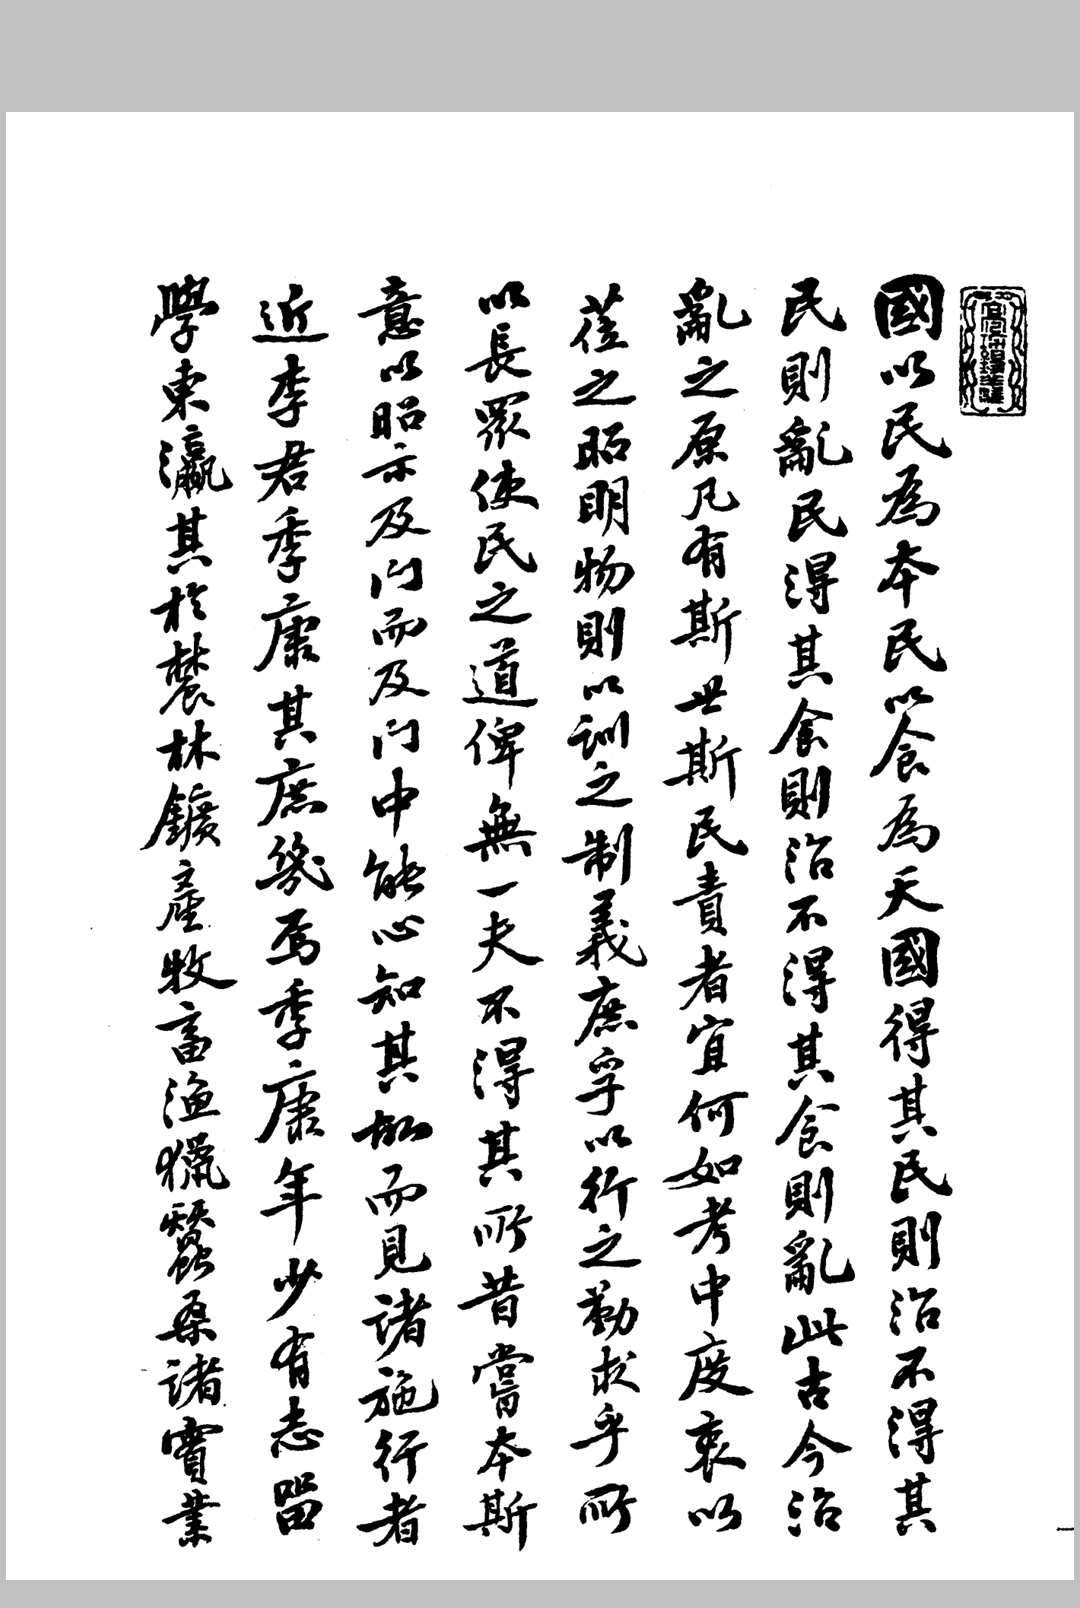 國以民為本民以食為天國得其民則治不得其
民則亂民得其食則治不得其食則亂此古今治
亂之原凡有斯世斯民責者宜何如考中度衷以
蒞之昭明物則以訓之制義庶孚以行之勤求乎所
以長眾使民之道俾無一夫不得其所昔嘗本斯
意以昭示及门而及门中能心知其故而見諸施行者
近李君季康其庶幾焉季康年少有志留
學東瀛其於農林鑛產牧畜漁獵蠶桑諸實業